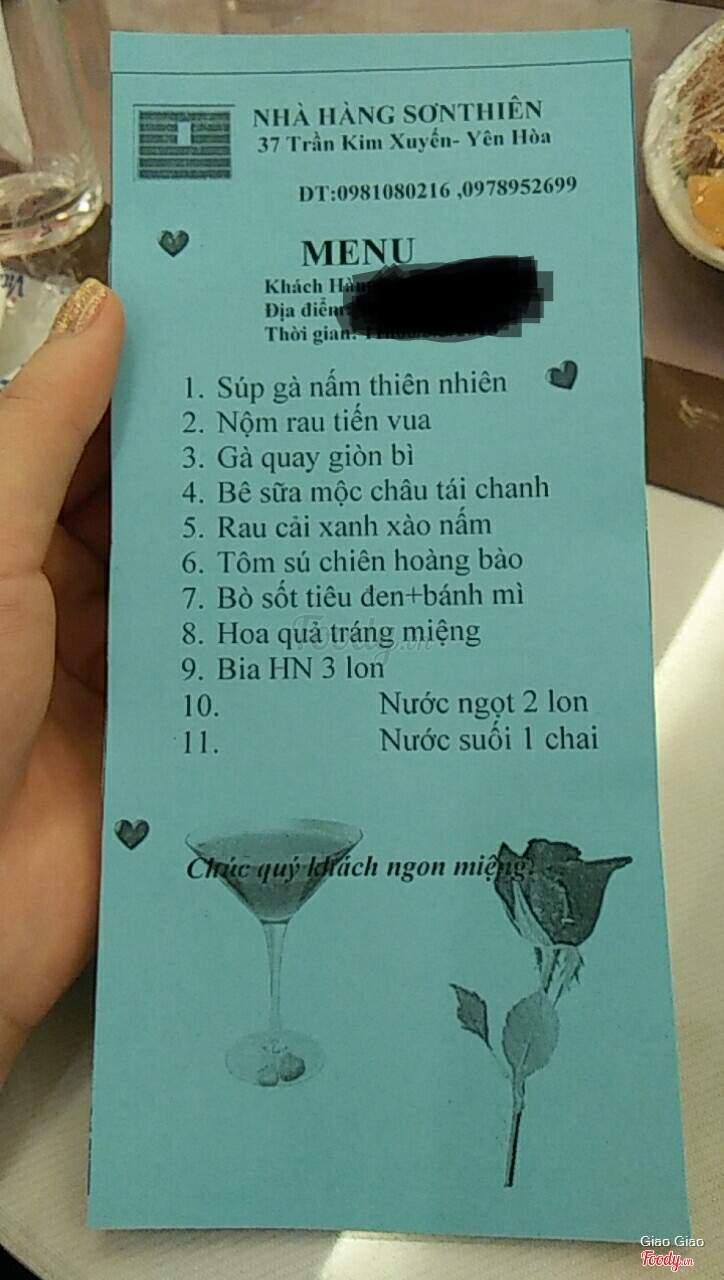 NHÀ HÀNG SƠNTHIÊN
37 Trần Kim Xuyến- Yên Hòa
DT:0981080216 ,0978952699
MENU
Khách Hàn
Địa điểm:
Thời gian:
1. Súp gà nấm thiên nhiên
2. Nộm rau tiến vua
3. Gà quay giòn bì
4. Bê sữa mộc châu tái chanh
5. Rau cải xanh xào nấm
6. Tôm sú chiên hoàng bào
7. Bò sốt tiêu đen+bánh mì
8. Hoa quả tráng miệng
Foody.vn
9. Bia HN 3 lon
10. Nước ngọt 2 lon
11. Nước suối 1 chai
Chúc quý khách ngon miệng!
Giao Giao
Foody.vn